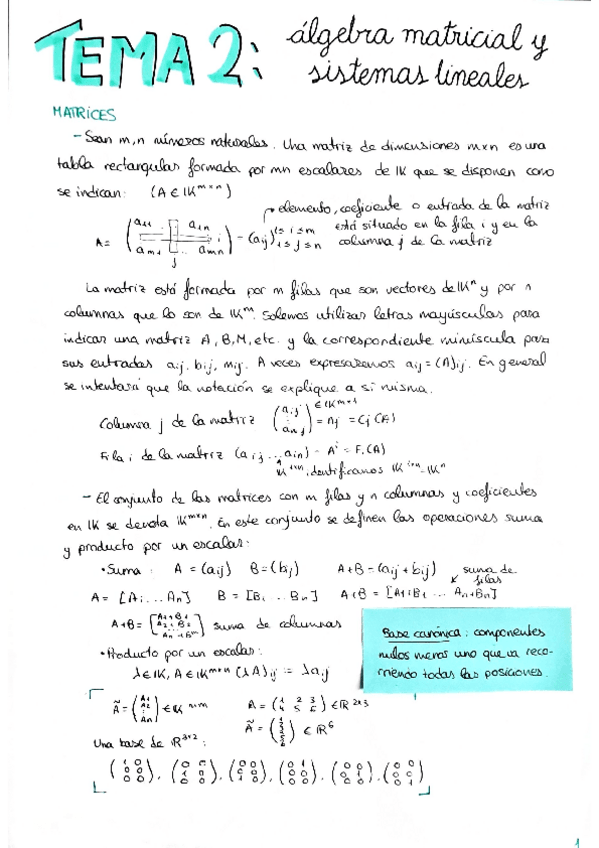 TEMA 2: álgebra matricial y
sistemas lineales
MATRICES
- Sean m,n números naturales. Una matriz de dimensiones m×n es una
tabla rectangular formada por mn escalares de IK que se disponen como
se indican: (A ∈ IK^{m×n})
elemento, coeficiente o entrada de la matriz
está situado en la fila i y en la
columna j de la matriz
La matriz está formada por m filas que son vectores de IK^n y por n
columnas que lo son de IK^m. Solemos utilizar letras mayúsculas para
indicar una matriz A, B, M, etc. y la correspondiente minúscula para
sus entradas aij, bij, mij. A veces expresaremos aij = (A)ij. En general
se intentará que la notación se explique a sí misma.
Columna j de la matriz
Fila i de la matriz
identificamos
- El conjunto de las matrices con m filas y n columnas y coeficientes
en IK se denota IK^{m×n}. En este conjunto se definen las operaciones suma
y producto por un escalar:
• Suma: A = (aij) B = (bij) A+B = (aij + bij) suma de
filas
A = [A1 ... An] B = [B1 ... Bn] A+B = [A1+B1 ... An+Bn]
suma de columnas
Base canónica: componentes
nulos menos uno que va reco-
rriendo todas las posiciones.
• Producto por un escalar:
λ ∈ IK, A ∈ IK^{m×n} (λA)ij := λaij
A = (1 2 3
4 5 6) ∈ IR^{2×3}
∈ IR^6
Una base de IR^{3×2}:
1